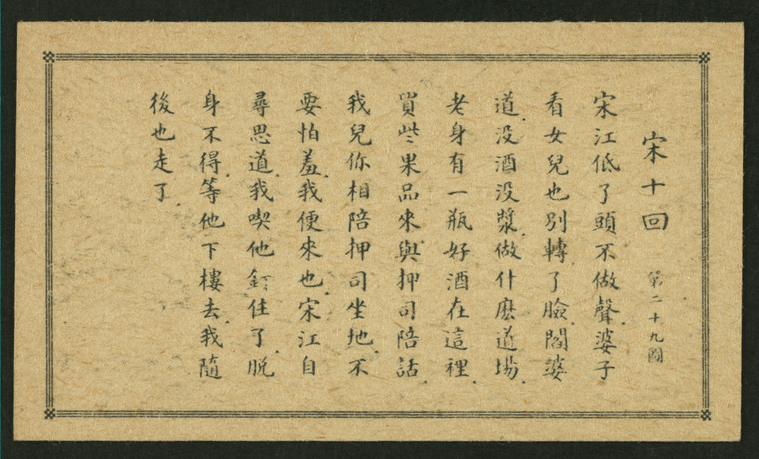 宋十回 第二十九圖
宋江低了頭不做聲婆子
看女兒也別轉了臉閻婆
道没酒没漿做什麽道場
老身有一瓶好酒在這裡
買些果品來與押司陪話
我兒你相陪押司坐地不
要怕羞我便來也宋江自
尋思道我喫他釘住了脱
身不得等他下樓去我隨
後也走了